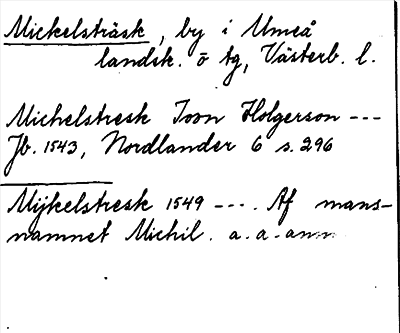 Mickelsträsk, by i Umeå
landsk. ö tg, Västerb. l.
Michelstresk Joon Holgerson ---
Jb. 1543, Nordlander 6 s. 296
Mijkelstresk 1549 ---. Af mans-
namnet Michil. a. a. anm